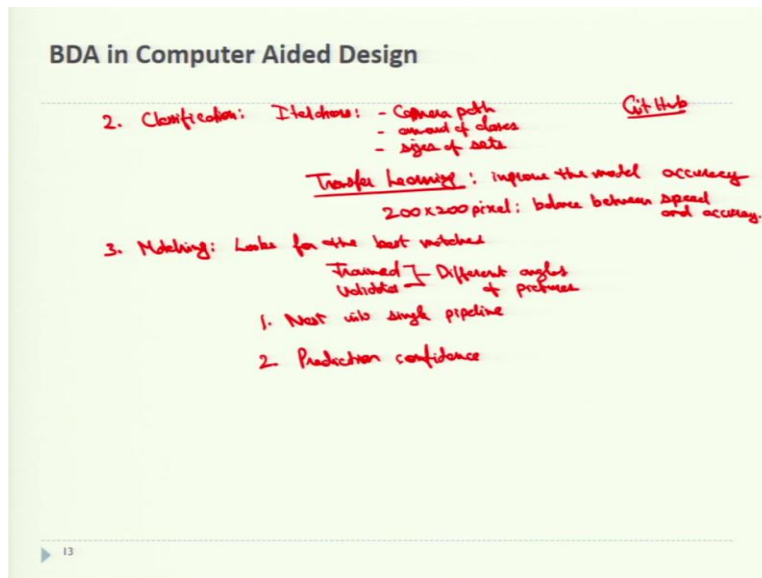 BDA in Computer Aided Design
GitHub
2. Classification: Iterations: - Camera path
- amount of classes
- sizes of sets
Transfer Learning: improve the model accuracy
200x200 pixel: balance between speed
and accuracy.
3. Matching: Looks for the best matches
Trained
Validated
Different angles
of pictures
1. Nest into single pipeline
2. Prediction confidence
13